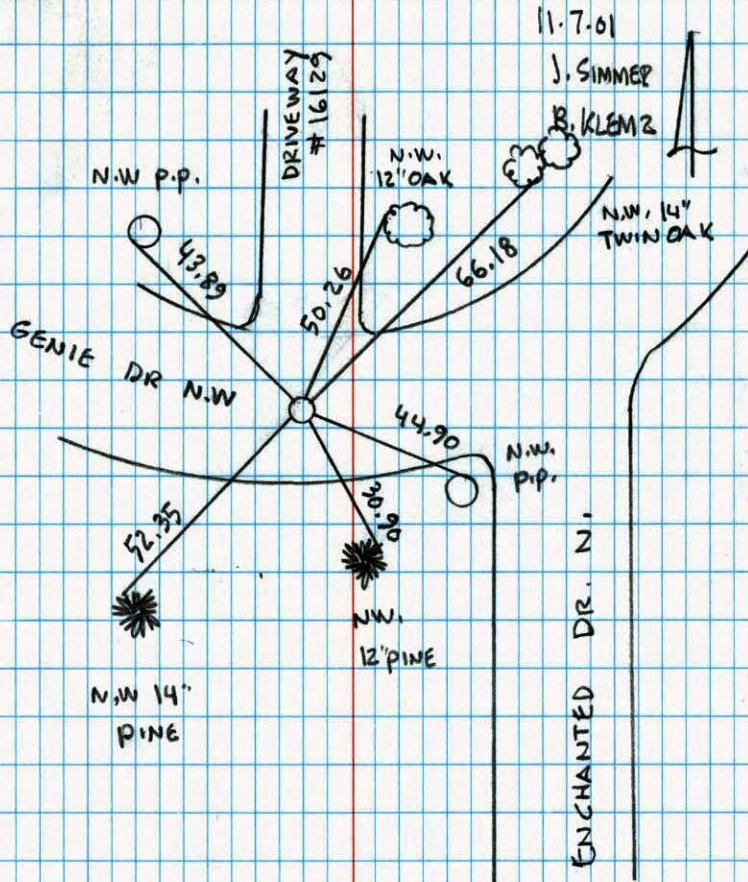 11.7.01
J. SIMMER
B. KLEMZ
DRIVEWAY
# 16129
N.W P.P.
N.W.
12" OAK
N.W. 14"
TWIN OAK
43.89
50.26
66.18
GENIE DR N.W
44.90
N.W.
P.P.
52.35
30.90
N.W 14"
PINE
NW.
12" PINE
ENCHANTED DR. N.